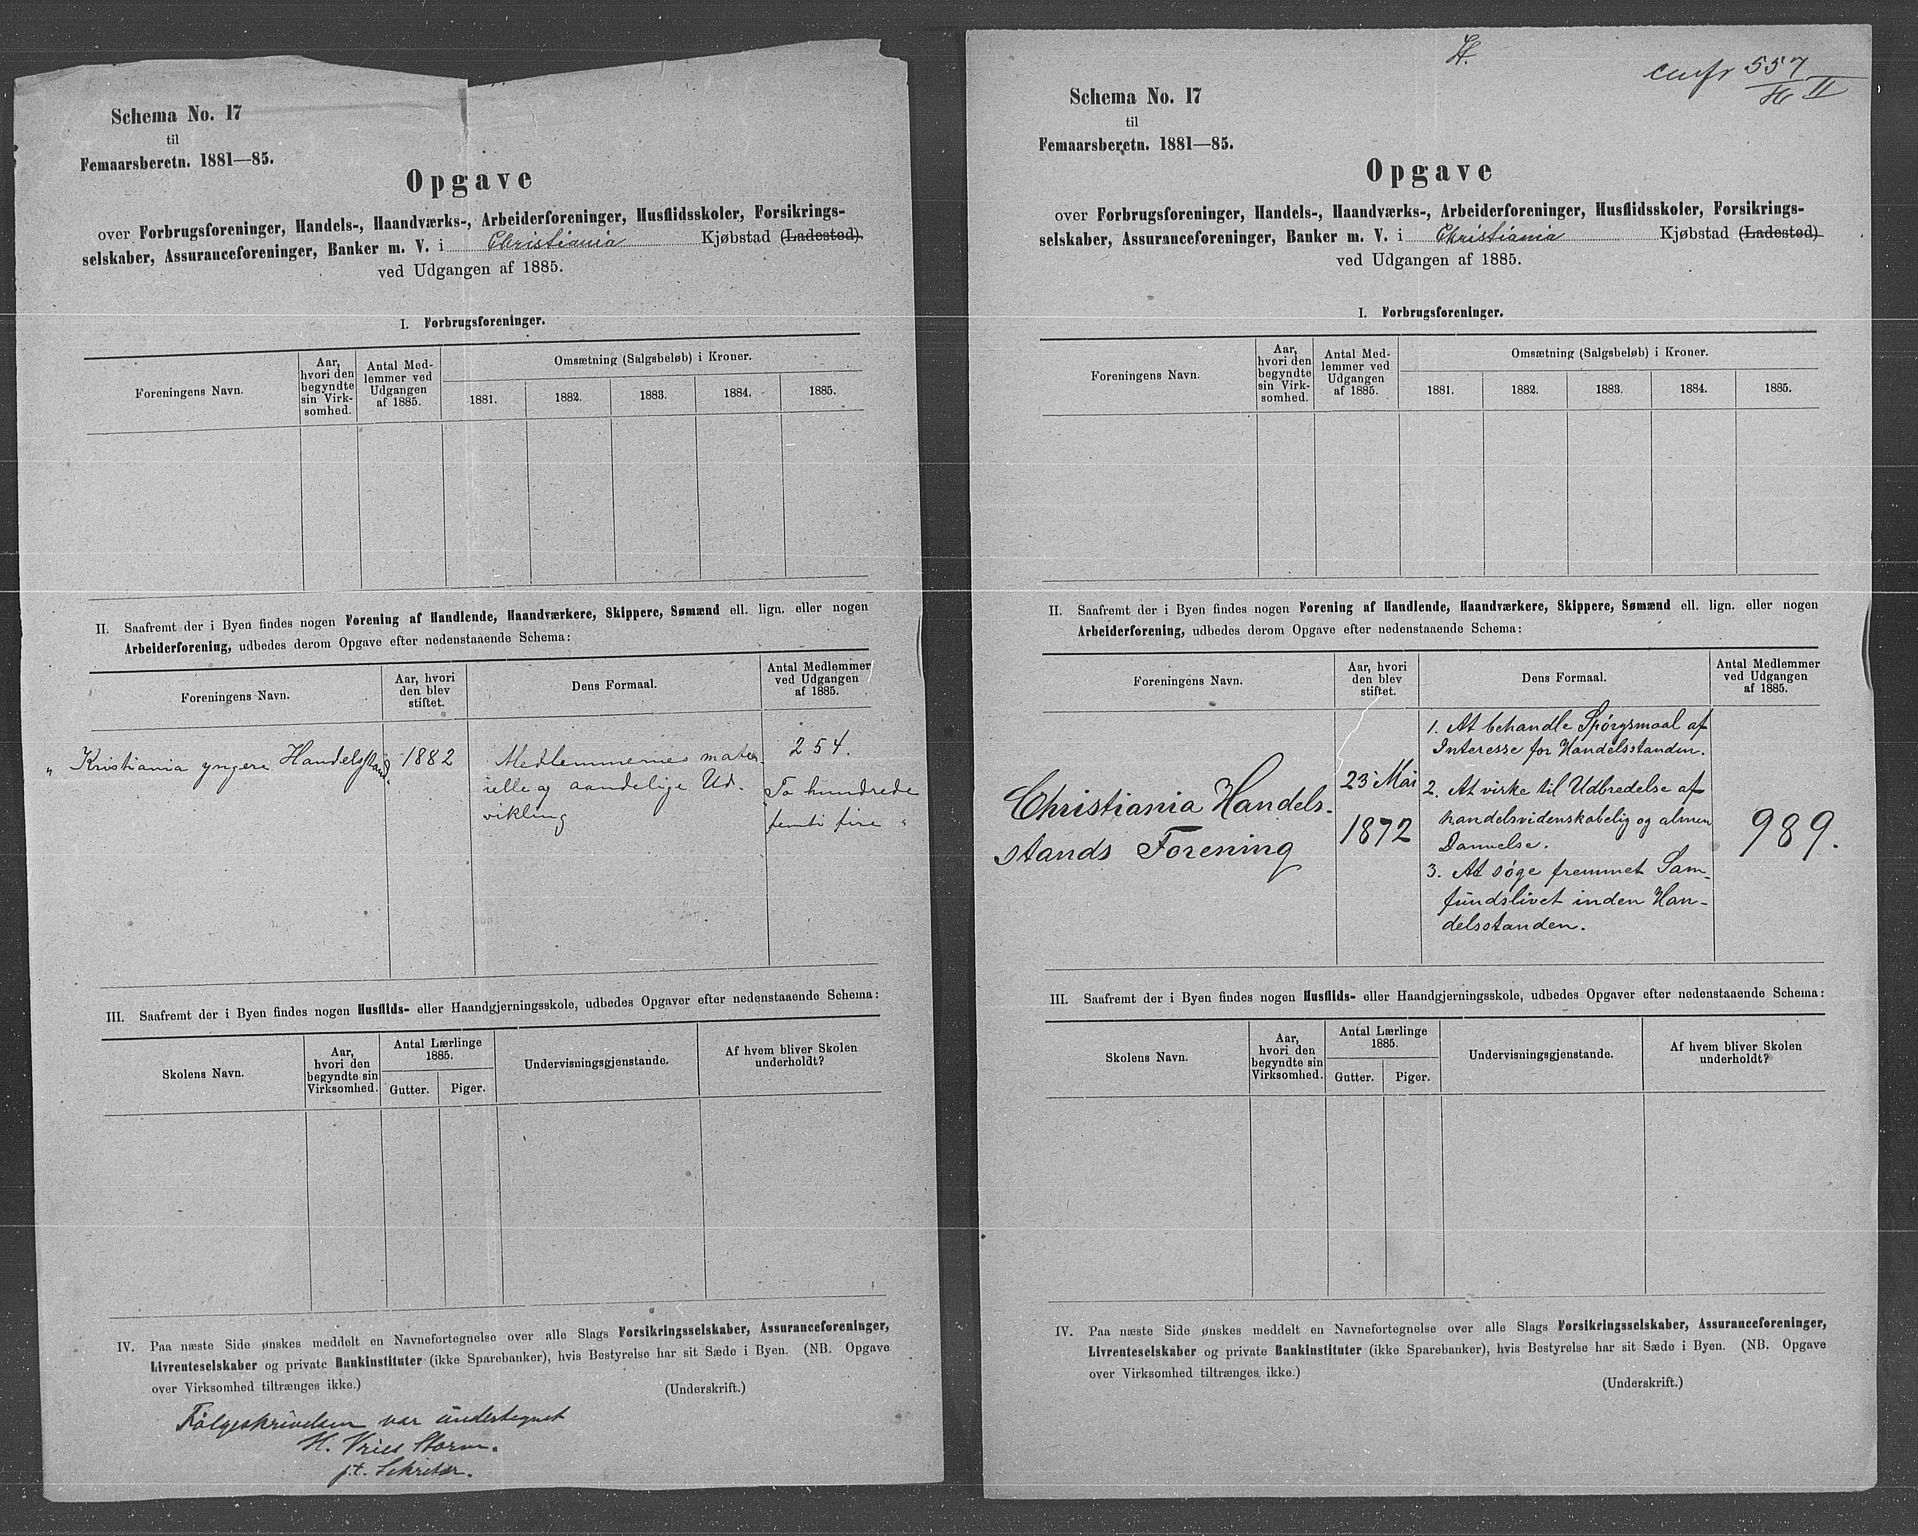 Schema No. 17
til
Femaarsberetn. 1881—85.
Opgave
over Forbrugsforeninger, Handels-, Haandværks-, Arbeiderforeninger, Husflidsskoler, Forsikrings-
selskaber, Assuranceforeninger, Banker m. V. i Christiania Kjøbstad (Ladested)
ved Udgangen af 1885.
I. Forbrugsforeninger.
Foreningens Navn.
Aar,
hvori den
begyndte
sin Virk-
somhed.
Antal Med-
lemmer ved
Udgangen
af 1885.
Omsætning (Salgsbeløb) i Kroner.
1881. 1882. 1883. 1884. 1885.
II. Saafremt der i Byen findes nogen Forening af Handlende, Haandværkere, Skippere, Sømænd ell. lign. eller nogen
Arbeiderforening, udbedes derom Opgave efter nedenstaaende Schema:
Foreningens Navn.
Aar, hvori
den blev
stiftet.
Dens Formaal.
Antal Medlemmer
ved Udgangen
af 1885.
„ Kristiania yngere Handelsstand“
1882
Medlemmernes mater-
ielle og aandelige Ud-
vikling
254.
To hundrede
femti fire „
III. Saafremt der i Byen findes nogen Husflids- eller Haandgjerningsskole, udbedes Opgaver efter nedenstaaende Schema:
Skolens Navn.
Aar,
hvori den
begyndte sin
Virksomhed.
Antal Lærlinge
1885.
Gutter. Piger.
Undervisningsgjenstande.
Af hvem bliver Skolen
underholdt?
IV. Paa næste Side ønskes meddelt en Navnefortegnelse over alle Slags Forsikringsselskaber, Assuranceforeninger,
Livrenteselskaber og private Bankinstituter (ikke Sparebanker), hvis Bestyrelse har sit Sæde i Byen. (NB. Opgave
over Virksomhed tiltrænges ikke.)
(Underskrift.)
Følgeskrivelsen var undertegnet
H. Vries Storm.
p.t. Sekretær.
H.
cnfr 557
II
Schema No. 17
til
Femaarsberetn. 1881—85.
Opgave
over Forbrugsforeninger, Handels-, Haandværks-, Arbeiderforeninger, Husflidsskoler, Forsikrings-
selskaber, Assuranceforeninger, Banker m. V. i Christiania Kjøbstad (Ladested)
ved Udgangen af 1885.
I. Forbrugsforeninger.
Foreningens Navn.
Aar,
hvori den
begyndte
sin Virk-
somhed.
Antal Med-
lemmer ved
Udgangen
af 1885.
Omsætning (Salgsbeløb) i Kroner.
1881. 1882. 1883. 1884. 1885.
II. Saafremt der i Byen findes nogen Forening af Handlende, Haandværkere, Skippere, Sømænd ell. lign. eller nogen
Arbeiderforening, udbedes derom Opgave efter nedenstaaende Schema:
Foreningens Navn.
Aar, hvori
den blev
stiftet.
Dens Formaal.
Antal Medlemmer
ved Udgangen
af 1885.
Christiania Handels-
stands Forening
23 Mai
1872
1. At behandle Spørgsmaal af
Interesse for Handelsstanden.
2. At virke til Udbredelse af
handelsvidenskabelig og almen
Dannelse.
3. At søge fremmet Sam-
fundslivet inden Han-
delsstanden.
989.
III. Saafremt der i Byen findes nogen Husflids- eller Haandgjerningsskole, udbedes Opgaver efter nedenstaaende Schema:
Skolens Navn.
Aar,
hvori den
begyndte sin
Virksomhed.
Antal Lærlinge
1885.
Gutter. Piger.
Undervisningsgjenstande.
Af hvem bliver Skolen
underholdt?
IV. Paa næste Side ønskes meddelt en Navnefortegnelse over alle Slags Forsikringsselskaber, Assuranceforeninger,
Livrenteselskaber og private Bankinstituter (ikke Sparebanker), hvis Bestyrelse har sit Sæde i Byen. (NB. Opgave
over Virksomhed tiltrænges ikke.)
(Underskrift.)